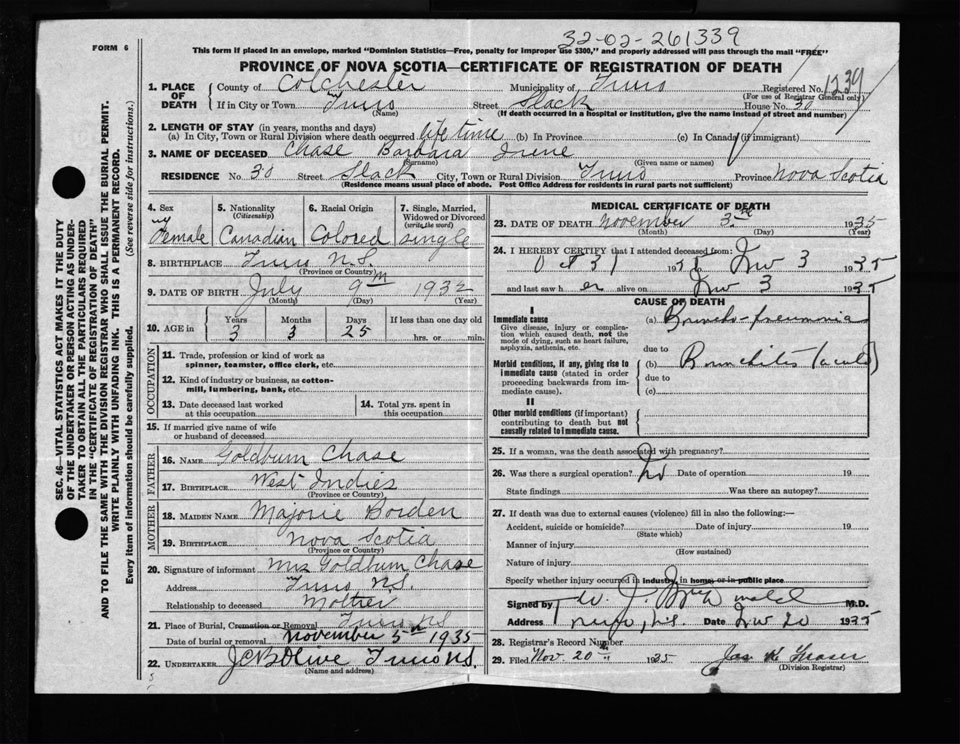 32-02-261339
FORM 6
This form if placed in an envelope, marked "Dominion Statistics—Free, penalty for improper use $300," and properly addressed will pass through the mail "FREE"
PROVINCE OF NOVA SCOTIA—CERTIFICATE OF REGISTRATION OF DEATH
1. PLACE OF DEATH County of Colchester Municipality of Truro Registered No. 1239
(For use of Registrar General only)
If in City or Town Truro Street Slack House No. 30
(Name) (If death occurred in a hospital or institution, give the name instead of street and number)
2. LENGTH OF STAY (in years, months and days)
(a) In City, Town or Rural Division where death occurred life time (b) In Province (c) In Canada (if immigrant)
3. NAME OF DECEASED Chase Barbara Irene
(Surname) (Given name or names)
RESIDENCE No. 30 Street Slack City, Town or Rural Division Truro Province Nova Scotia
(Residence means usual place of abode. Post Office Address for residents in rural parts not sufficient)
4. Sex Female
5. Nationality (Citizenship) Canadian
6. Racial Origin Colored
7. Single, Married, Widowed or Divorced (write the word) single
8. BIRTHPLACE Truro N.S.
(Province or Country)
9. DATE OF BIRTH July 9th 1932
(Month) (Day) (Year)
10. AGE in Years Months Days If less than one day old
3 3 25 hrs. or min.
OCCUPATION
11. Trade, profession or kind of work as spinner, teamster, office clerk, etc.
12. Kind of industry or business, as cotton-mill, lumbering, bank, etc.
13. Date deceased last worked at this occupation
14. Total yrs. spent in this occupation
15. If married give name of wife or husband of deceased
FATHER
16. NAME Goldburn Chase
17. BIRTHPLACE West Indies
(Province or Country)
MOTHER
18. MAIDEN NAME Majorie Borden
19. BIRTHPLACE Nova Scotia
(Province or Country)
20. Signature of informant Mrs Goldburn Chase
Address Truro N.S.
Relationship to deceased Mother
21. Place of Burial, Cremation or Removal Truro NS
Date of burial or removal November 5th 1935
22. UNDERTAKER J C B Olive Truro N.S.
(Name and address)
5
MEDICAL CERTIFICATE OF DEATH
23. DATE OF DEATH November 3rd 1935
(Month) (Day) (Year)
24. I HEREBY CERTIFY that I attended deceased from:
Oct 31 1935 Nov 3 1935
and last saw her alive on Nov 3 1935
CAUSE OF DEATH
I
Immediate cause
Give disease, injury or complication which caused death, not the mode of dying, such as heart failure, asphyxia, asthenia, etc.
(a) Broncho-pneumonia
due to
Morbid conditions, if any, giving rise to immediate cause (stated in order proceeding backwards from immediate cause).
(b) Bronchitis (acute)
due to
(c)
II
Other morbid conditions (if important) contributing to death but not causally related to immediate cause.
25. If a woman, was the death associated with pregnancy?
26. Was there a surgical operation? No Date of operation 19
State findings Was there an autopsy?
27. If death was due to external causes (violence) fill in also the following:—
Accident, suicide or homicide? Date of injury 19
(State which)
Manner of injury
(How sustained)
Nature of injury
Specify whether injury occurred in industry, in home, or in public place
Signed by W. J. M.D.
Address Truro, N.S. Date Nov 20 1935
28. Registrar's Record Number
29. Filed Nov. 20th 1935 Jas K Fraser
(Division Registrar)
SEC. 46—VITAL STATISTICS ACT MAKES IT THE DUTY
OF THE UNDERTAKER OR PERSON ACTING AS UNDER-
TAKER TO OBTAIN ALL THE PARTICULARS REQUIRED
IN THE "CERTIFICATE OF REGISTRATION OF DEATH"
AND TO FILE THE SAME WITH THE DIVISION REGISTRAR WHO SHALL ISSUE THE BURIAL PERMIT.
WRITE PLAINLY WITH UNFADING INK. THIS IS A PERMANENT RECORD.
Every item of information should be carefully supplied. (See reverse side for instructions.)